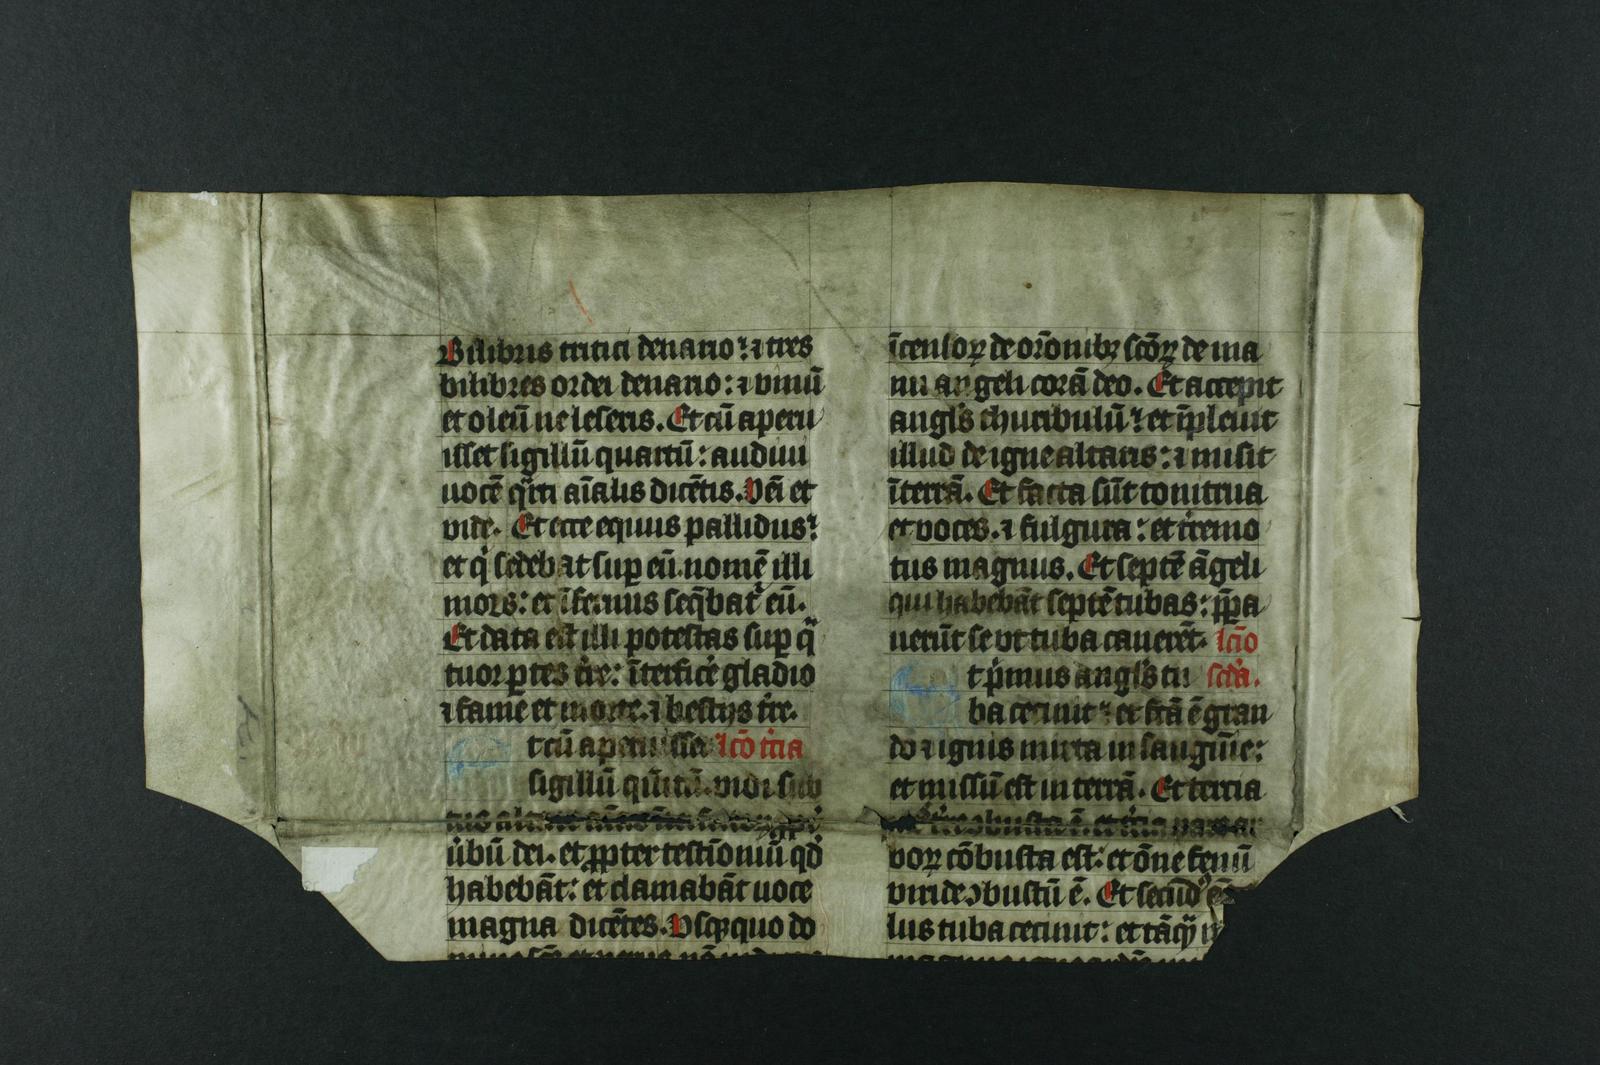 Bilibris tritici denario: ⁊ tres
bilibres ordei denario: ⁊ vinū
et oleū ne leseris. Et cū aperu
isset sigillū quartū: audiui
uocē q̄rti aīalis dicētis. Veī et
vide. Et ecce equus pallidus:
et q̇ sedebat sup̱ eū. nomē illi
mors: et īfernus seq̄bat᷑ eū.
Et data est illi potestas sup̱ q̄
tuor p̱tes t̄re: īterficė gladio
⁊ fame et morte. ⁊ bestijs t̄re.
t cū aperuisset lcō t̄cia
sigillū quītū. vidi sub
ūbū dei. et ꝓpter testīoniū qd̄
habebāt: et clamabāt uoce
magna dicētes. Vsqꝫquo do
īcensoꝝ de orōnibꝫ scōꝝ de ma
nu angeli corā deo. Et accepit
angl̄s thuribulū: et īpleuit
illud de igne altaris: ⁊ misit
ī terrā. Et facta sūt tonitrua
et voces. ⁊ fulgura: et t̄remo
tus magnus. Et septē āgeli
qui habebāt septē tubas: p̄pa
uerūt se vt tuba canerēt. lcīo
t p̄mus angl̄s tu scd̄a.
ba cecinit: et fc̄a ē gran
do ⁊ ignis mixta in sanguīe:
et missū est in terrā. Et tercia
boꝝ cōbusta est: et ōne fenū
viride ꝯbustū ē. Et secūd᷒
lus tuba cecinit: et tāqͣ